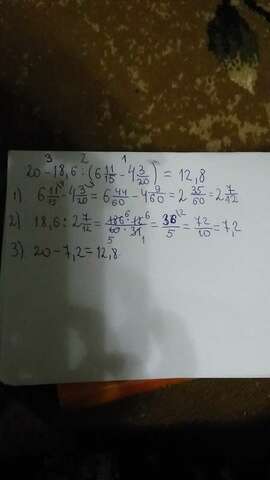 3 2 1
20 - 18,6 : (6 11/15 - 4 3/20) = 12,8
1) 6 11/15 - 4 3/20 = 6 44/60 - 4 9/60 = 2 35/60 = 2 7/12
2) 18,6 : 2 7/12 = 186 · 12/60 · 31 = 36/5 = 72/10 = 7,2
3) 20 - 7,2 = 12,8